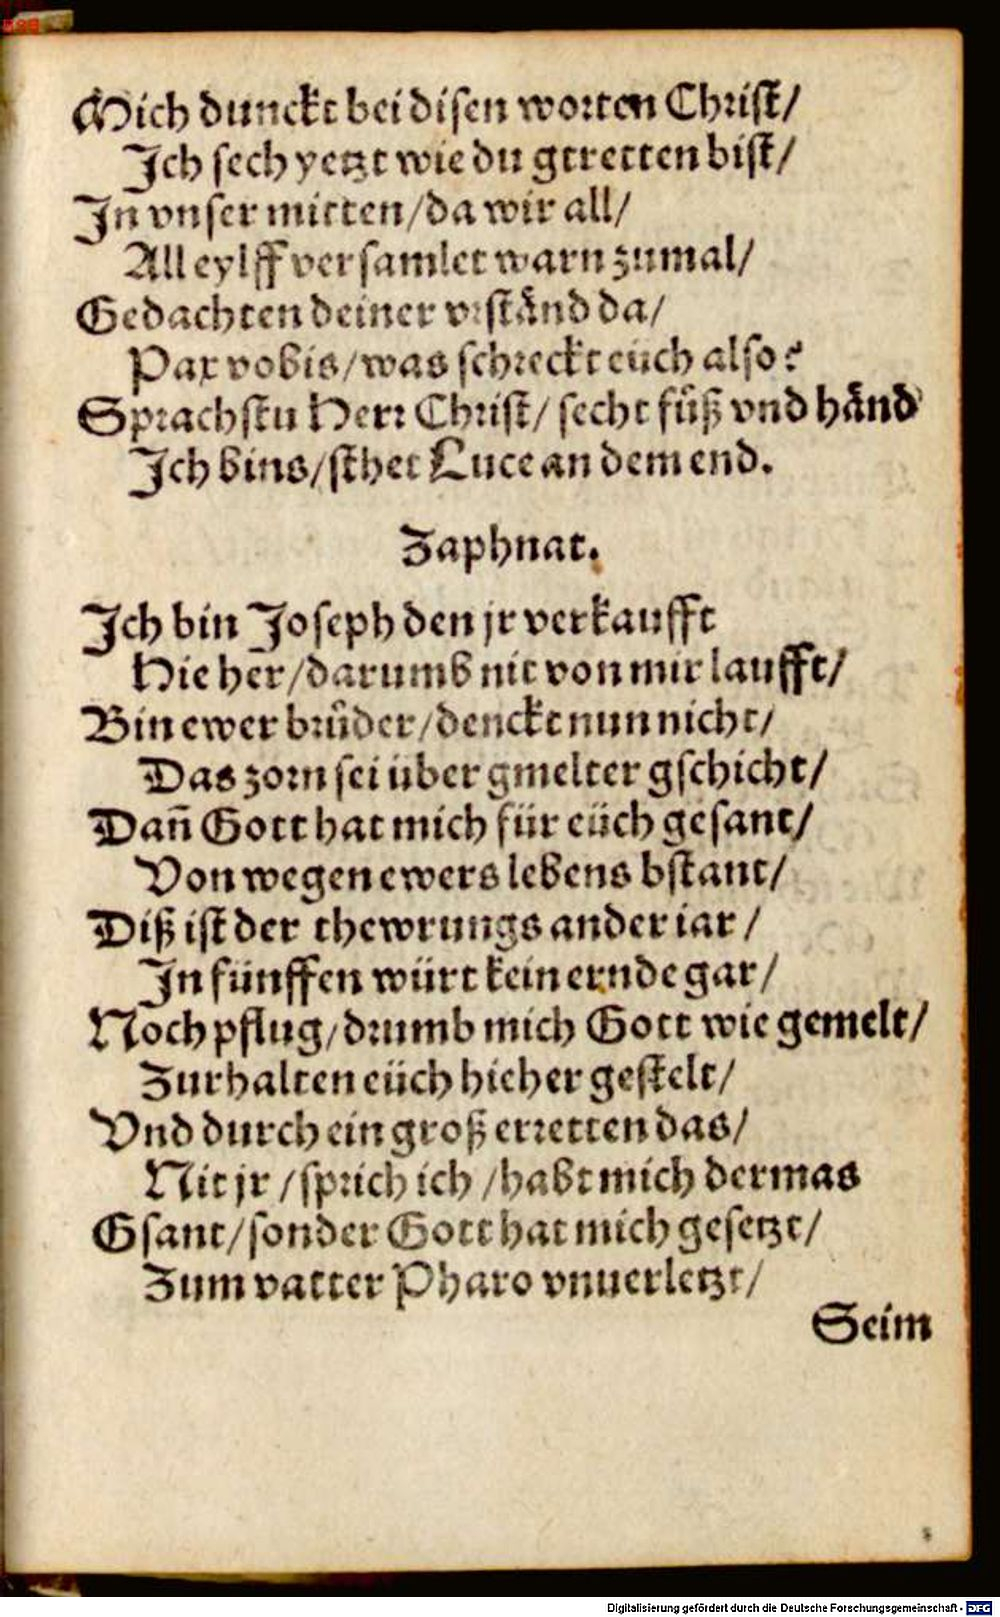 Mich dunckt bei disen worten Christ/
Ich sech yetzt wie du gtretten bist/
In vnser mitten/da wir all/
All eylff versamlet warn zumal/
Gedachten deiner vrständ da/
Pax vobis/was schreckt eüch also?
Sprachstu Herr Christ/ secht füß vnd händ
Ich bins/sthet Luce an dem end.
Zaphnat.
Ich bin Joseph den jr verkaufft
Hie her/darumb nit von mir laufft/
Bin ewer brůder/denckt nun nicht/
Das zorn sei über gmelter gschicht/
Dañ Gott hat mich für eüch gesant/
Von wegen ewers lebens bstant/
Diß ist der thewrungs ander iar /
In fünffen würt kein ernde gar/
Noch pflug/drumb mich Gott wie gemelt/
Zurhalten eüch hieher gestelt/
Vnd durch ein groß erretten das/
Nit jr /sprich ich /habt mich dermas
Gsant/sonder Gott hat mich gesetzt/
Zum vatter Pharo vnuerletzt/
Seim
Digitalisierung gefördert durch die Deutsche Forschungsgemeinschaft - DFG